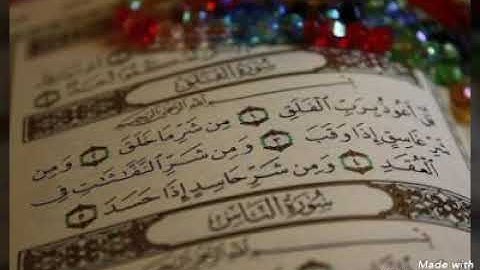 سُورَةُ الْفَلَقِ
قُلْ أَعُوذُ بِرَبِّ الْفَلَقِ ١ مِن شَرِّ مَا خَلَقَ ٢ وَمِن
شَرِّ غَاسِقٍ إِذَا وَقَبَ ٣ وَمِن شَرِّ النَّفَّاثَاتِ فِي
الْعُقَدِ ٤ وَمِن شَرِّ حَاسِدٍ إِذَا حَسَدَ ٥
سُورَةُ النَّاسِ
Made with